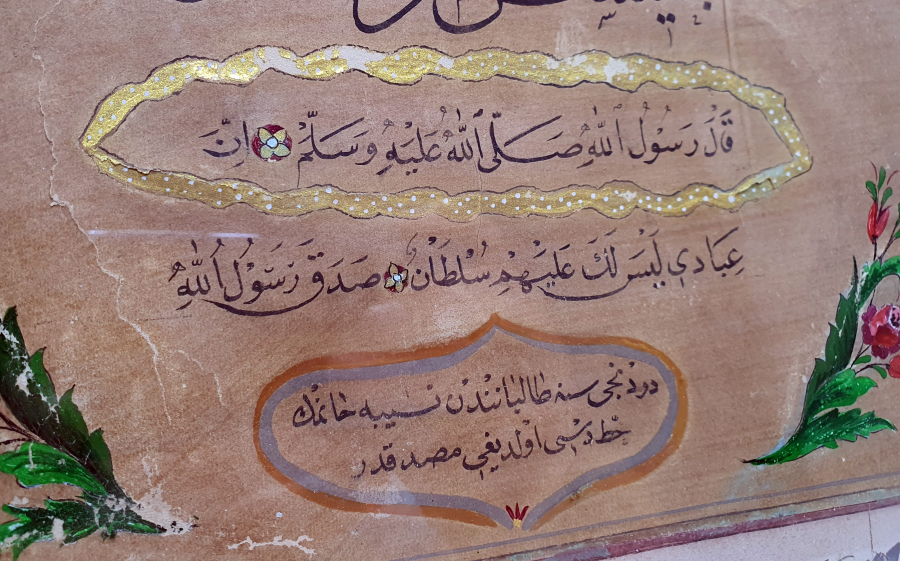 قَالَ رَسُولُ اللّٰهِ صَلَّى اللّٰهُ عَلَيْهِ وَسَلَّمْ اِنَّ
عِبَادِي لَيْسَ لَكَ عَلَيْهِمْ سُلْطَانْ صَدَقَ رَسُولُ اللّٰهِ
دردنجى سنه طالباتندن نسيبه خانمك
خط دستى اولديغى مصدقدر